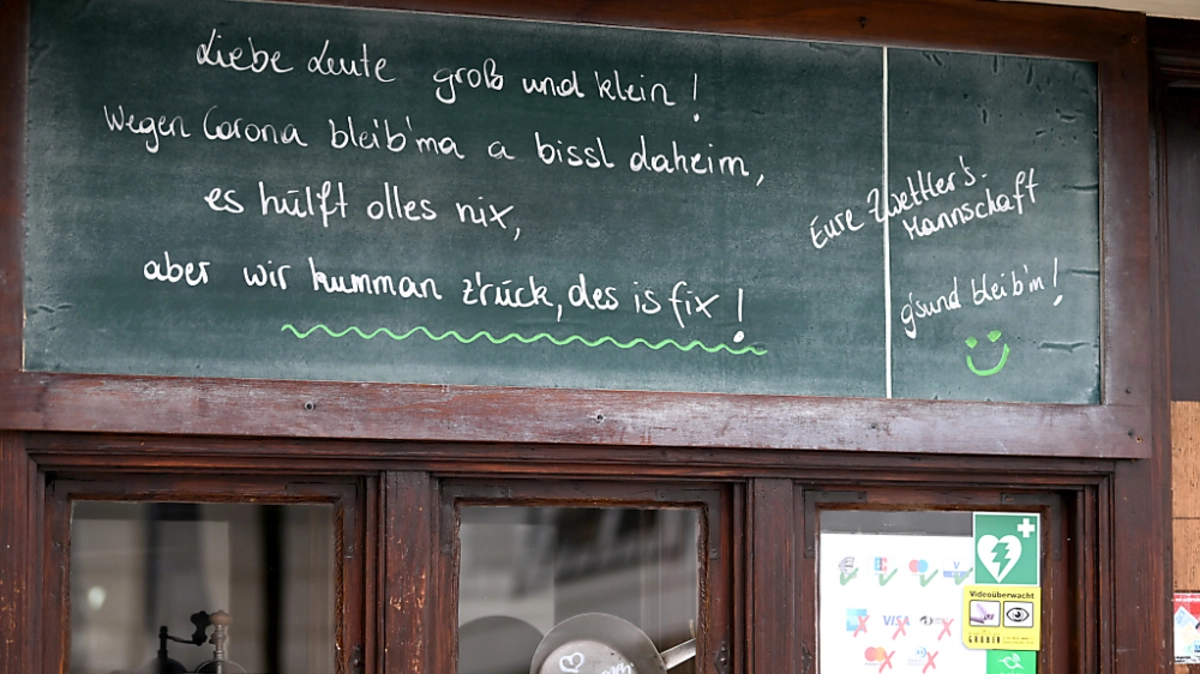 Liebe Leute groß und klein!
Wegen Corona bleib'ma a bissl daheim,
es hülft olles nix,
aber wir kumman z'rück, des is fix!
Eure Zwettler's.
Mannschaft
g'sund bleib'm!
VISA
Videoüberwacht
GRUBER